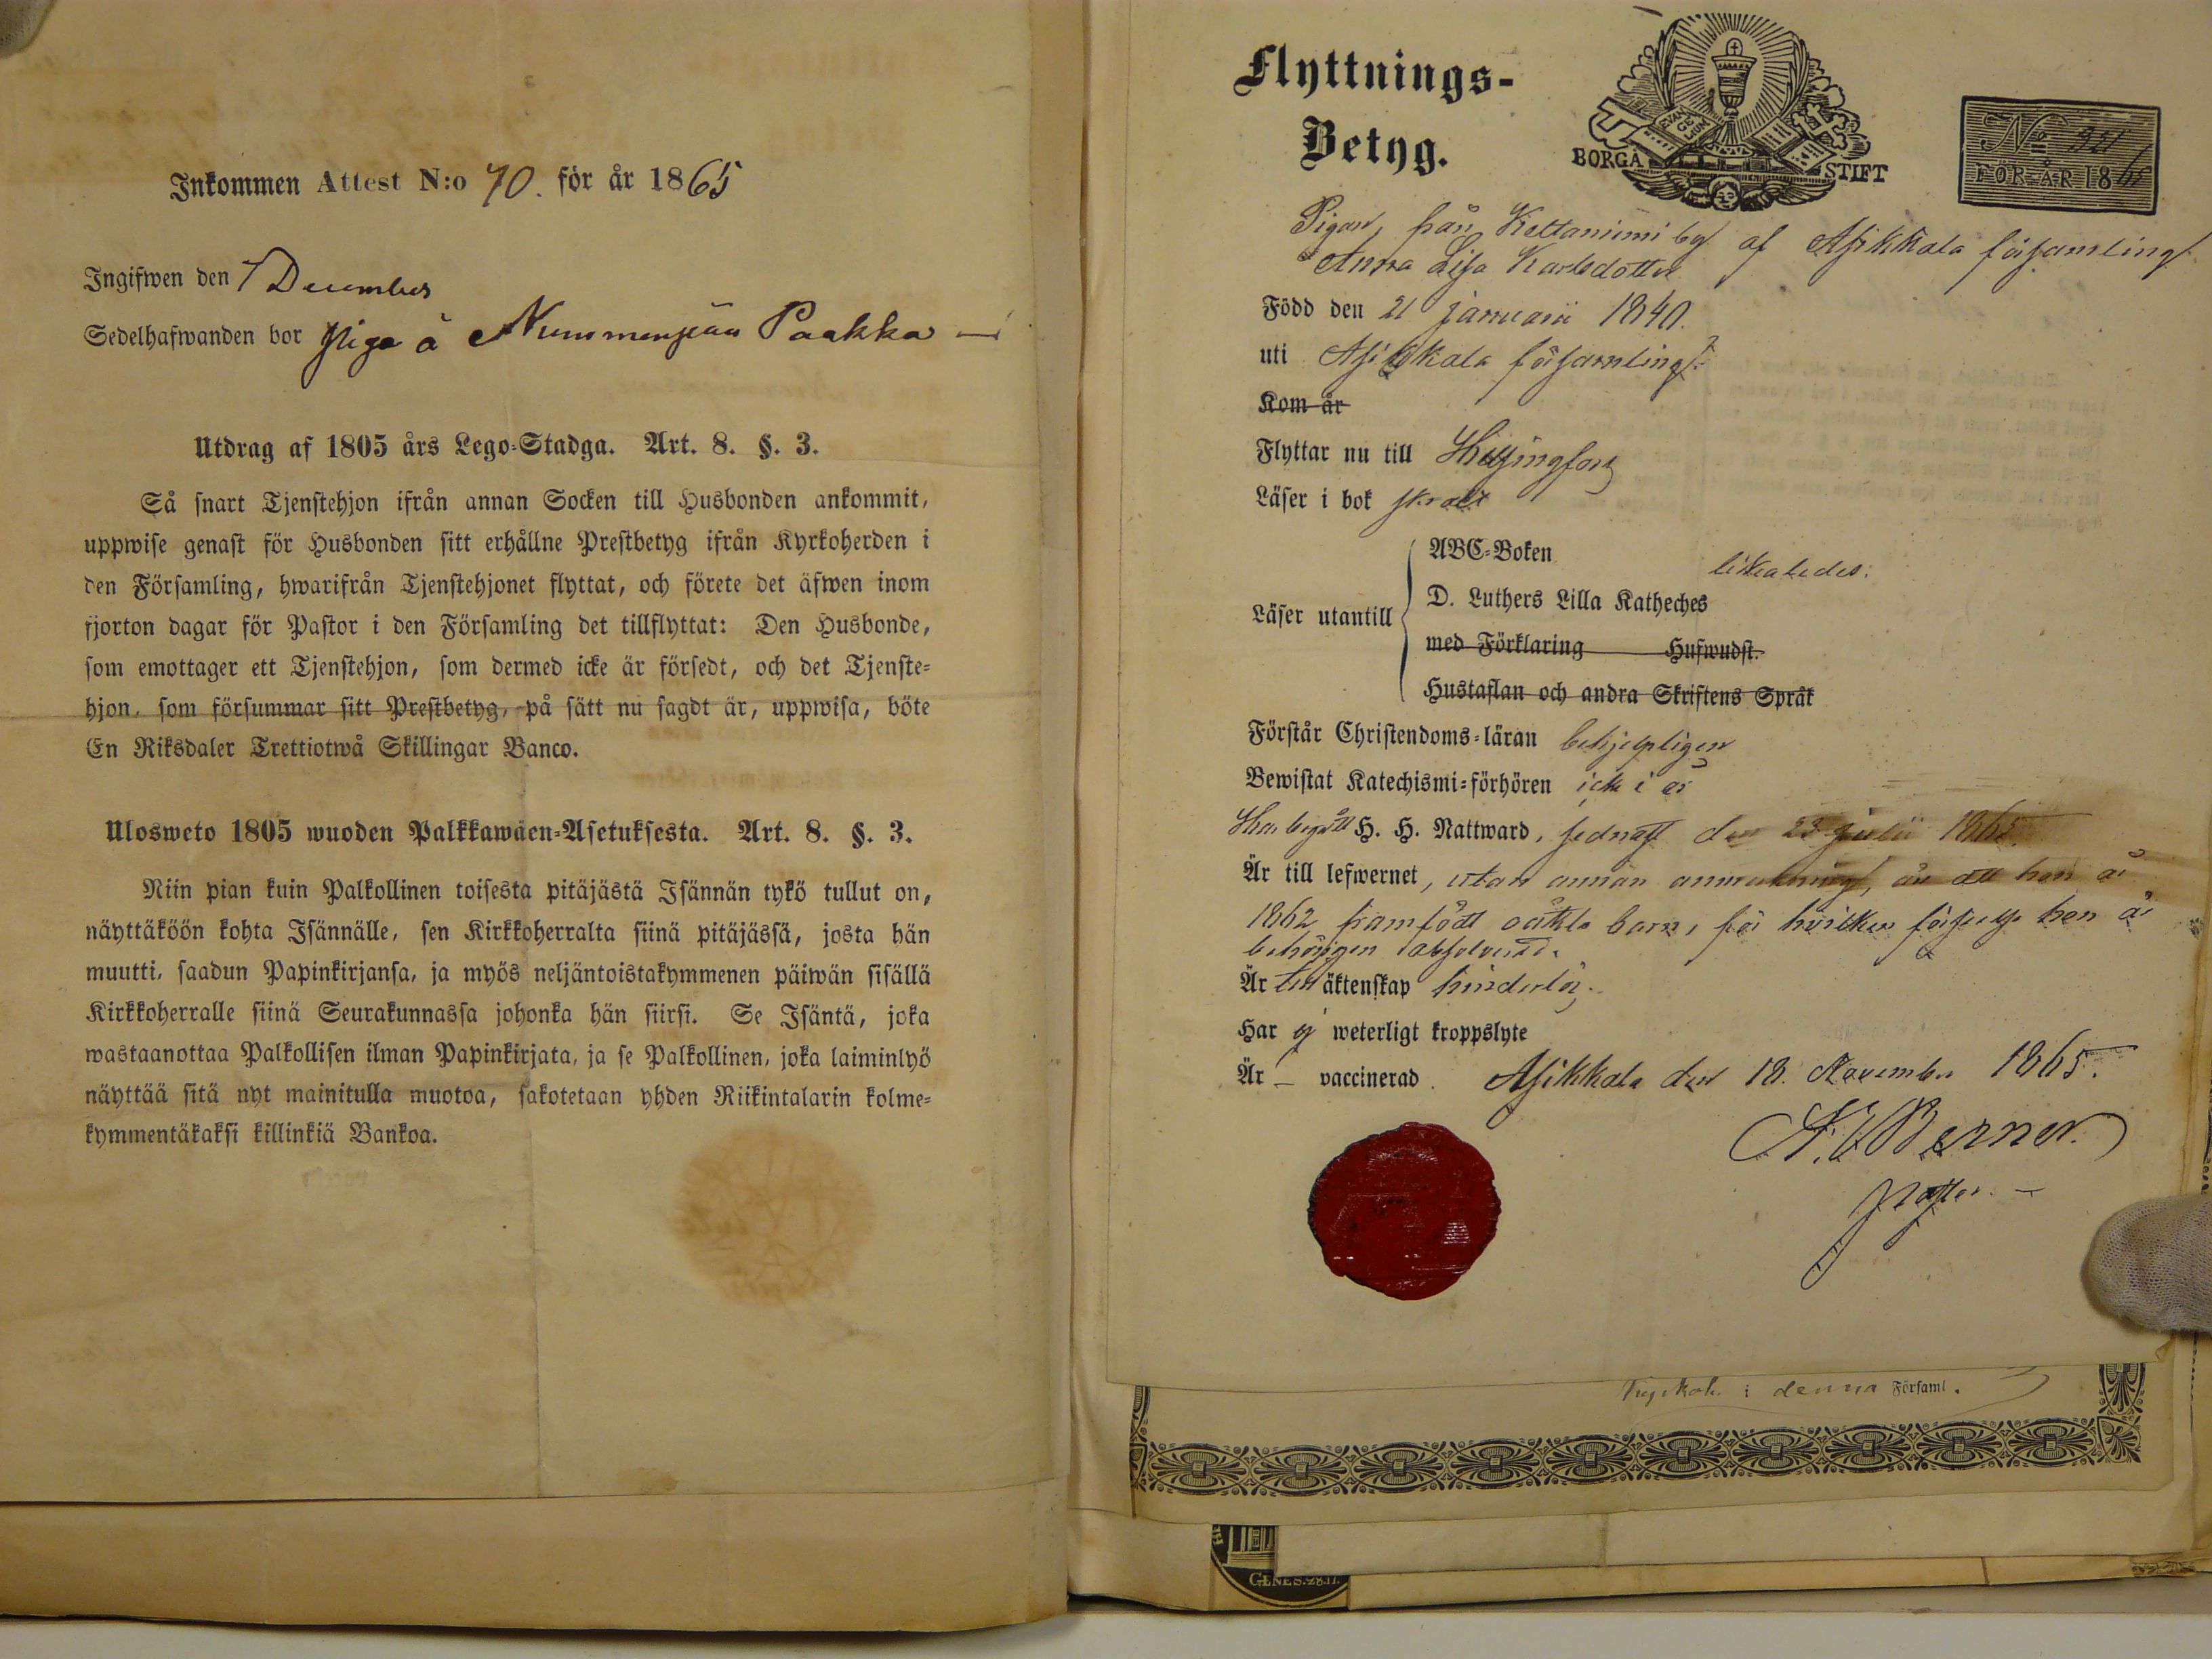 Inkommen Attest N:o 70. för år 1865
Ingifwen den 7 December
Sedelhafwanden bor piga å Nummenpää Paakka —
Utdrag af 1805 års Lego-Stadga. Art. 8. §. 3.
Så snart Tjenstehjon ifrån annan Socken till Husbonden ankommit,
uppwise genast för Husbonden sitt erhållne Prestbetyg ifrån Kyrkoherden i
den Församling, hwarifrån Tjenstehjonet flyttat, och förete det äfwen inom
fjorton dagar för Pastor i den Församling det tillflyttat: Den Husbonde,
som emottager ett Tjenstehjon, som dermed icke är försedt, och det Tjenste-
hjon, som försummar sitt Prestbetyg, på sätt nu sagdt är, uppwisa, böte
En Riksdaler Trettiotwå Skillingar Banco.
Ulosweto 1805 wuoden Palkkawäen-Asetuksesta. Art. 8. §. 3.
Niin pian kuin Palkollinen toisesta pitäjästä Isännän tykö tullut on,
näyttäköön kohta Isännälle, sen Kirkkoherralta siinä pitäjässä, josta hän
muutti, saadun Papinkirjansa, ja myös neljäntoistakymmenen päiwän sisällä
Kirkkoherralle siinä Seurakunnassa johonka hän siirsi. Se Isäntä, joka
wastaanottaa Palkollisen ilman Papinkirjata, ja se Palkollinen, joka laiminlyö
näyttää sitä nyt mainitulla muotoa, sakotetaan yhden Riikintalarin kolme-
kymmentäkaksi killinkiä Bankoa.
Flyttnings-
Betyg.
EVAN
GE
LIUM
BORGÅ STIFT
No 921
FÖR ÅR 1865
Pigan, från Kettaniemi by af Asikkala församling
Anna Lisa Karlsdotter
Född den 21 januarii 1840.
uti Asikkala församling.
Kom år
Flyttar nu till Helsingfors
Läser i bok svalt
Läser utantill
ABC-Boken
likaledes.
D. Luthers Lilla Katheches
med Förklaring Hufwudst.
Hustaflan och andra Skriftens Språk
Förstår Christendoms-läran behjelpligen
Bewistat Katechismi-förhören icke i år
Har begått H. H. Nattward, sednast den 23 julii 1865.
Är till lefwernet, utan annan anmärkning, än att hon år
1862 framfödt oäkta barn, för hvilken förseelse hon är
behörigen absolverad.
Är till äktenskap hinderlös.
Har ej weterligt kroppslyte
Är — vaccinerad. Asikkala den 18. November 1865.
Berner.
Pastor. —
i denna Församl.
GENES. 28.17.